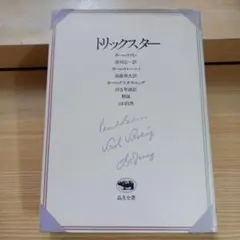 トリックスター
ポール・ラディン
皆河宗一訳
カール・ケレーニイ
高橋英夫訳
カール・グスタフ・ユング
河合隼雄訳
解説
山口昌男
晶文全書